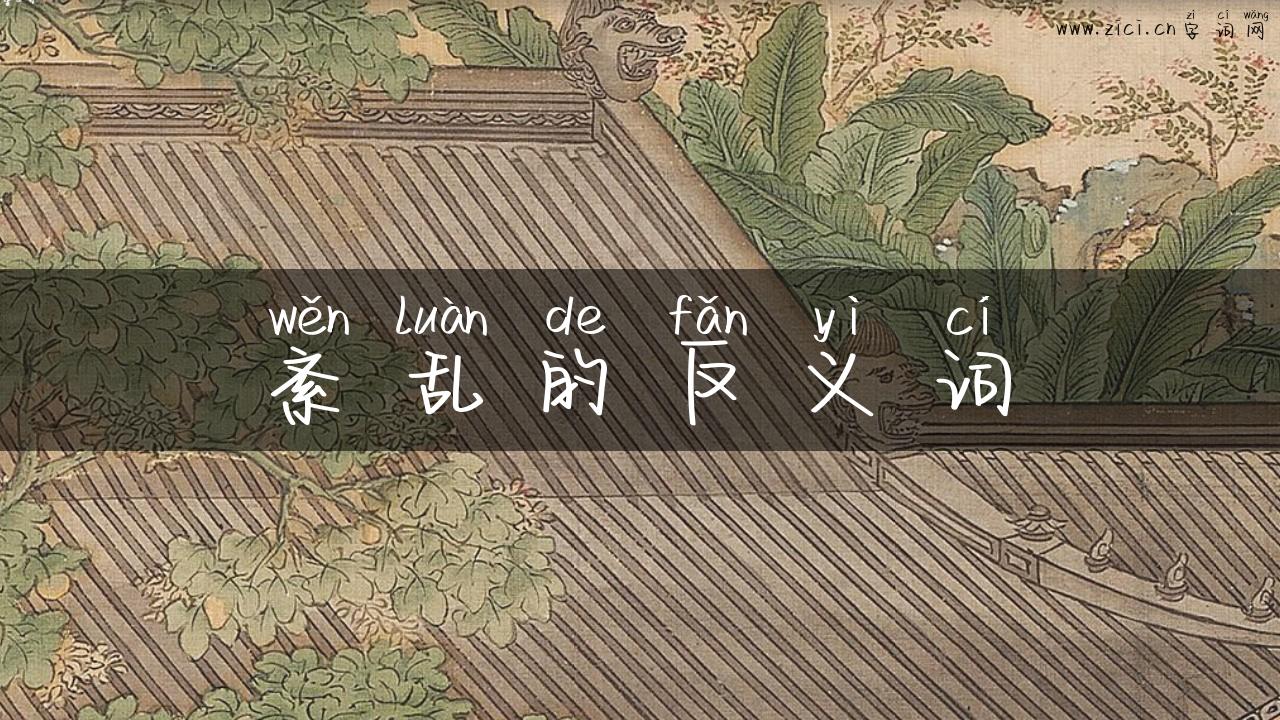 zì cí wǎng
www.zici.cn 字词网
wěn luàn de fǎn yì cí
紊乱的反义词